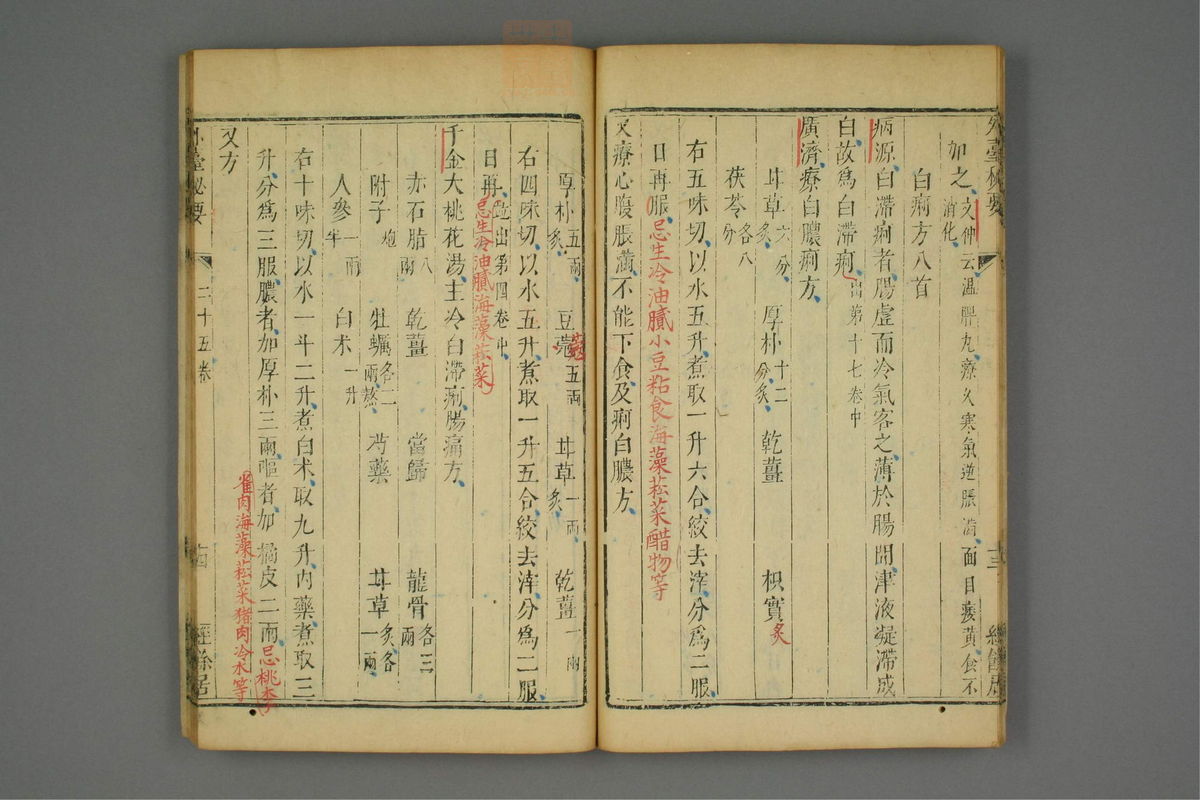 外臺秘要
加之消化文仲云溫脾丸療久寒氣逆脹滿面目痿黃食不
白痢方八首
病源白滯痢者腸虛而冷氣客之薄於腸間津液凝滯成
白故爲白滯痢出第十七卷中
廣濟療白膿痢方
甘草六分炙 厚朴十二分炙 乾薑 枳實炙
茯苓各八分
右五味切以水五升煮取一升六合絞去滓分爲二服
日再服忌生冷油膩小豆粘食海藻菘菜醋物等
又療心腹脹滿不能下食及痢白膿方
厚朴五兩炙 豆蔻五兩 甘草一兩炙 乾薑一兩
右四味切以水五升煮取一升五合絞去滓分爲二服
日再並出第四卷中忌生冷油膩海藻菘菜
千金大桃花湯主冷白滯痢腸痛方
赤石脂八兩 乾薑 當歸 龍骨各三兩
附子炮 牡蠣各二兩熬 芍藥 甘草炙各一兩
人參一兩半 白术一升
右十味切以水一斗二升煮白术取九升內藥煮取三
升分爲三服膿者加厚朴三兩嘔者加橘皮二兩忌桃李
雀肉海藻菘菜猪肉冷水等
又方
外臺秘要 二十五卷 古 經餘居